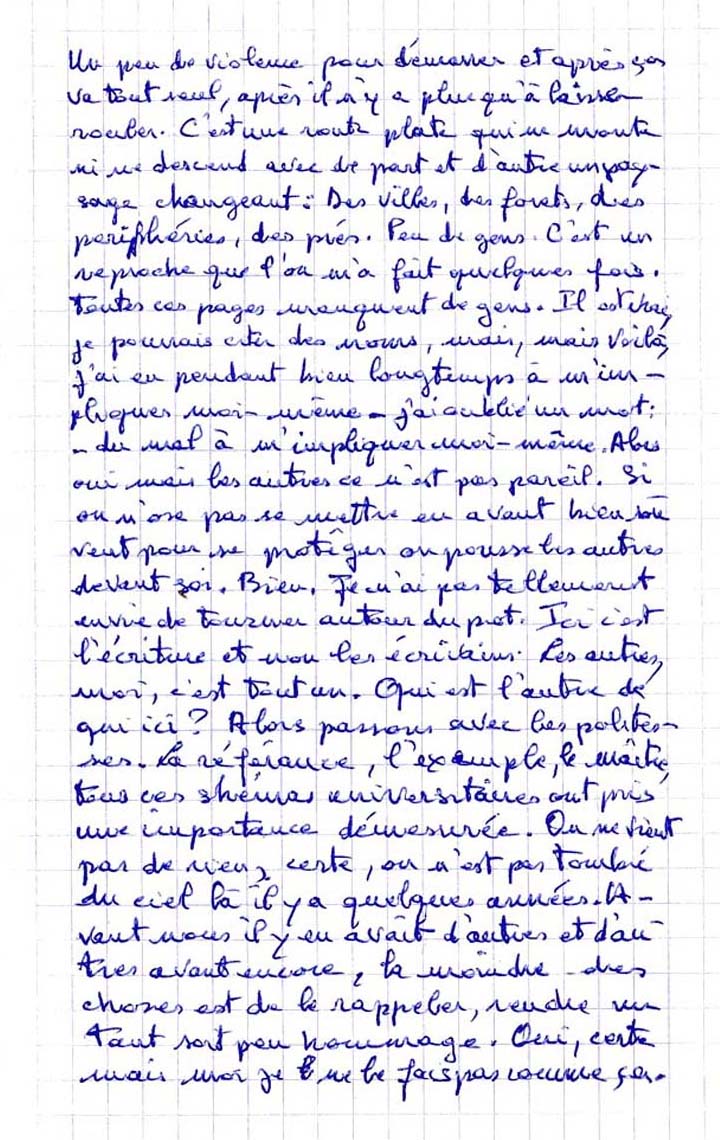 Un peu de violence pour démarrer et après ça
va tout seul, après il n'y a plus qu'à laisser
rouler. C'est une route plate qui ne monte
ni ne descend avec de part et d'autre un pay-
sage changeant : Des villes, des forêts, des
périphéries, des prés. Peu de gens. C'est un
reproche que l'on m'a fait quelques fois.
Toutes ces pages manquent de gens. Il est vrai,
je pourrais citer des noms, mais, mais voilà,
j'ai eu pendant bien longtemps à m'im-
pliquer moi-même - j'ai oublié un mot :
- du mal à m'impliquer moi-même. Alors
oui mais les autres ce n'est pas pareil. Si
on n'ose pas se mettre en avant bien sou
vent pour se protéger on pousse les autres
devant soi. Bien. Je n'ai pas tellement
envie de tourner autour du pot. Ici c'est
l'écriture et non les écrivains. Les autres,
moi, c'est tout un. Qui est l'autre de
qui ici ? Alors passons avec les polites-
ses. La référance, l'exemple, le maître,
tous ces shémas universitaires ont pris
une importance démesurée. On ne vient
pas de rien, certe, on n'est pas tombé
du ciel là il y a quelques années. A-
vant nous il y en avait d'autres et d'au-
tres avant encore, la moindre des
choses est de le rappeler, rendre un
tant soit peu hommage. Oui, certe
mais moi je ne le fais pas comme ça.